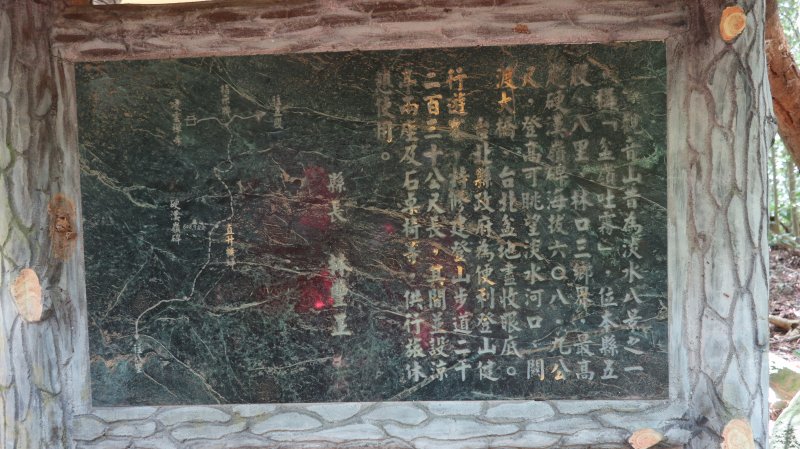 觀音山昔為淡水八景之一
稱「坌嶺吐霧」，位本縣五
股、八里、林口三鄉界，最高
處硬漢嶺碑海拔六０八．九公
尺，登高可眺望淡水河口、關
渡大橋，台北盆地盡收眼底。
台北縣政府為便利登山健
行遊客，特修建登山步道二千
二百三十公尺長，其間並設涼
亭兩座及石桌椅等，供行旅休
憩使用。
縣長 林豐正
硬漢嶺碑